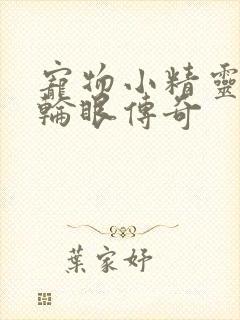 寵物小精靈
輪眼傳奇
葉家妤